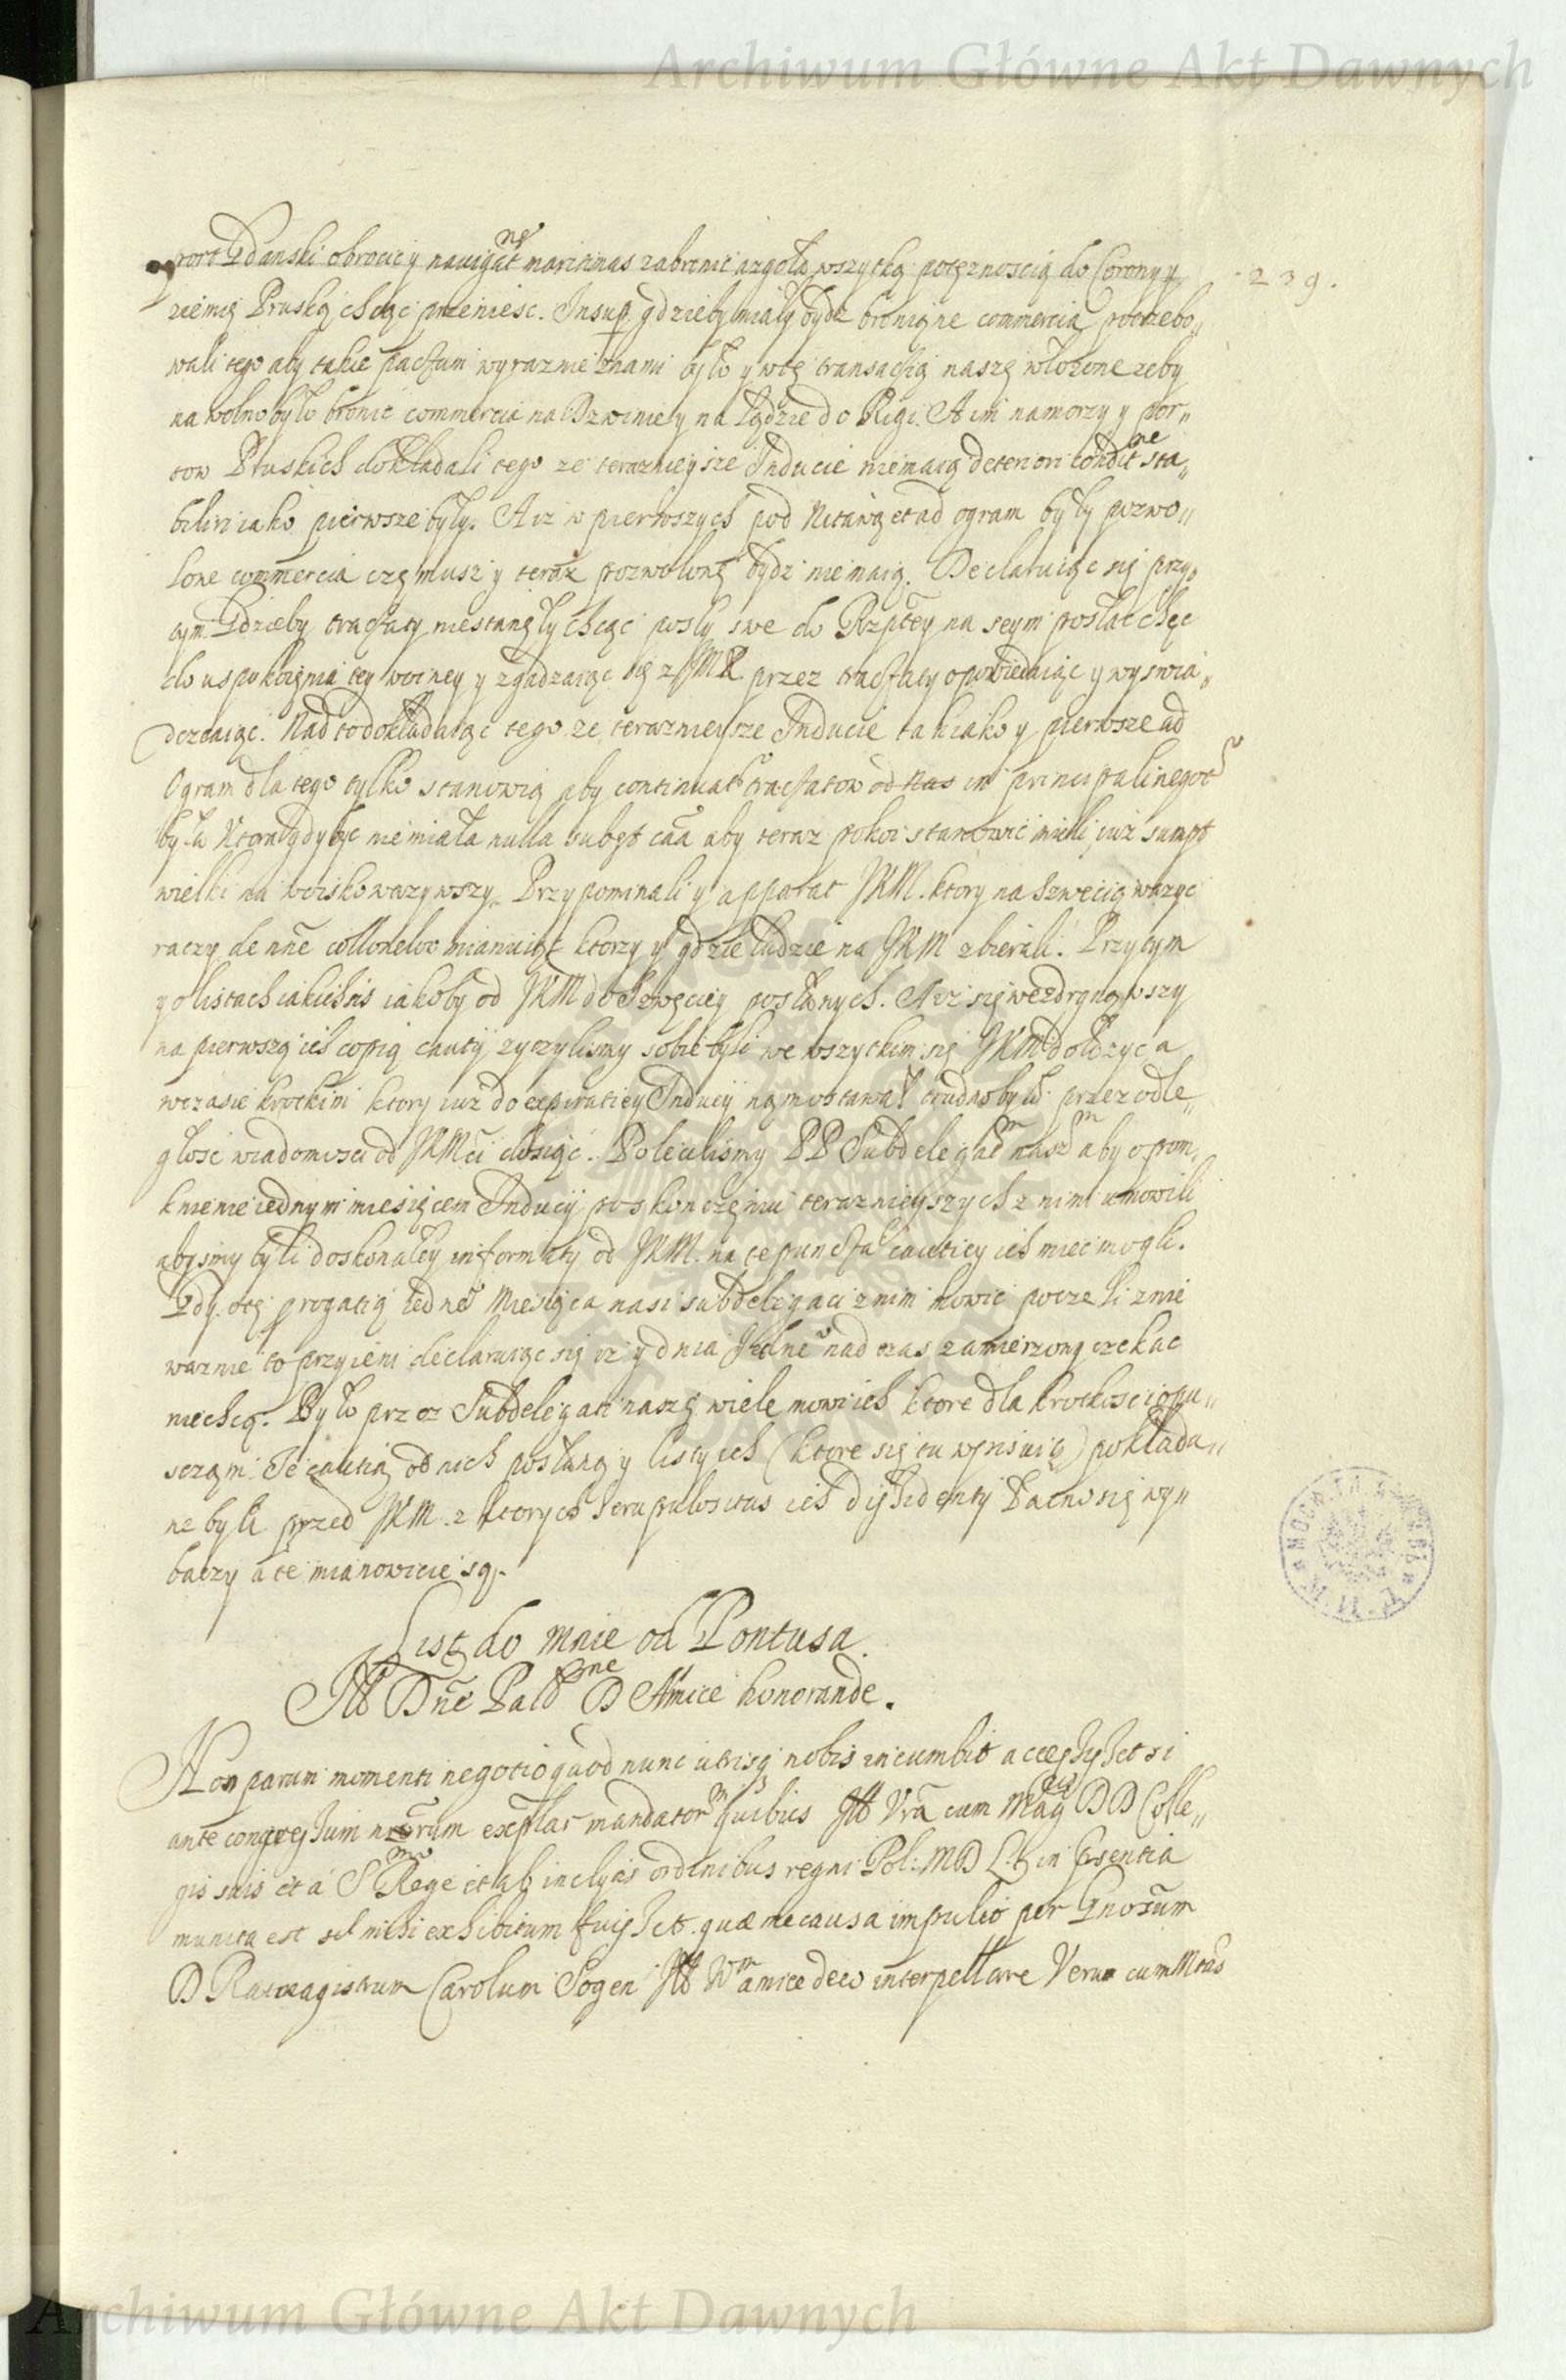 Archiwum Główne Akt Dawnych
port Gdanski obrocic y nauigat<sup>nes</sup> maritimas zabronic azgoła wszytką potęznoscią do Corony y
239.
ziemię Pruską chcąc przeniesc. Insup gdzieby miały bydz bronione commercia potrzebo„
wali tego aby takie pactum wyraznie znami było y wtę transactią naszę włozone zeby
nawolno było bronic commercia na Dzwinie y na lądzie do Rigi. A im namorzy y por„
tow Pruskich dokładali tego ze teraznieysze Inducie niemaią deteriori condit<sup>ne</sup> sta„
biliri iako pierwsze były. A iz w pierwszych pod Mitawą et ad ogram były pozwo„
lone commercia czemusz y teraz pozwolone bydz niemaią. Declaruiąc się przy„
tym Gdzieby tractaty niestanęły chcąc posly swe do Rzptey na seym posłac chęc
do uspokoięnia tey woiney y zgadzaiąc się z JKM przez tractaty opowiedaiąc y wyswia„
dczaiąc. Nad to dokładaiąc tego ze teraznieysze Inducie tak iako y pierwsze ad
Ogram dla tego tylko stanowią aby continuatio tractatow od nas in principali negotio
była Ktora gdy byc niemiała nulla subest caā aby teraz pokoi stanowic mieli iuz sumpt
wielki na woisko wazywszy. Przypominali y apparat JKM. ktory na Szwecią wazyc
raczy de nn̄e collonelow mianuiąc ktorzy y gdzie ludzie na JKM zbierali. Przytym
y o listach iakichsis iakoby od JKM do Szwęciey posłanych. A iz się wezdrgnąwszy
na pierwszą ich copią cautÿ zyczylismy sobie byli we wszytkim się JKM dołozyc a
wczasie krotkim ktory iuz do expiratiey Inducij nąm zostawał trudno było przez odle„
głosc wiadomosci od JKMci dosiąc. Polecilismy PP Subdelegat<sup>m</sup> nasz<sup>m</sup> aby o pom„
knienie iednym miesiącem Inducij po skonczęniu teraznieyszych z nimi umowili
abysmy byli doskonałey informaty od JKM. na te puncta cautiey ich miec mogli.
Gdy otę prorogatią iedneo Miesiąca nasi subdelegaci z nimi mowic poczeli znie
waznie to przyieni declaruiąc się iz y dnia Jedneo nad czas zamierzony czekac
niechcą. Było przez Subdelegati naszę wiele mow ich ktore dla krotkosci opu„
scząm. Te cautią od nich posłaną y listy ich (ktore się tu wpisuią) pokłada„
ne byli przed JKM. z ktorych scrupulositas ich diffidenty łacno się wy„
baczy a te mianowicie są.
List do mnie od Pontusa.
Ill Dn̄e Palat<sup>ne</sup> D Amice honorande.
Non parum momenti negotio quod nunc utrisq nobis incumbit accessisset si
ante congressum nr̄orum exemplar mandator<sup>m</sup> quibus Ill Vrā cum Mag<sup>cis</sup> DD Colle„
gis suis et à S<sup>mo</sup> Rege et ab inclytis ordinibus regni Pol: MD L. in p̄sentia
munita est vel mihi exhibitum fuisset. quae me causa impulit per Gnosum
D Ratmagistrum Carolum Sogen Ill V<sup>m</sup> amice deco interpellare Verum cum Mens
Archiwum Główne Akt Dawnych